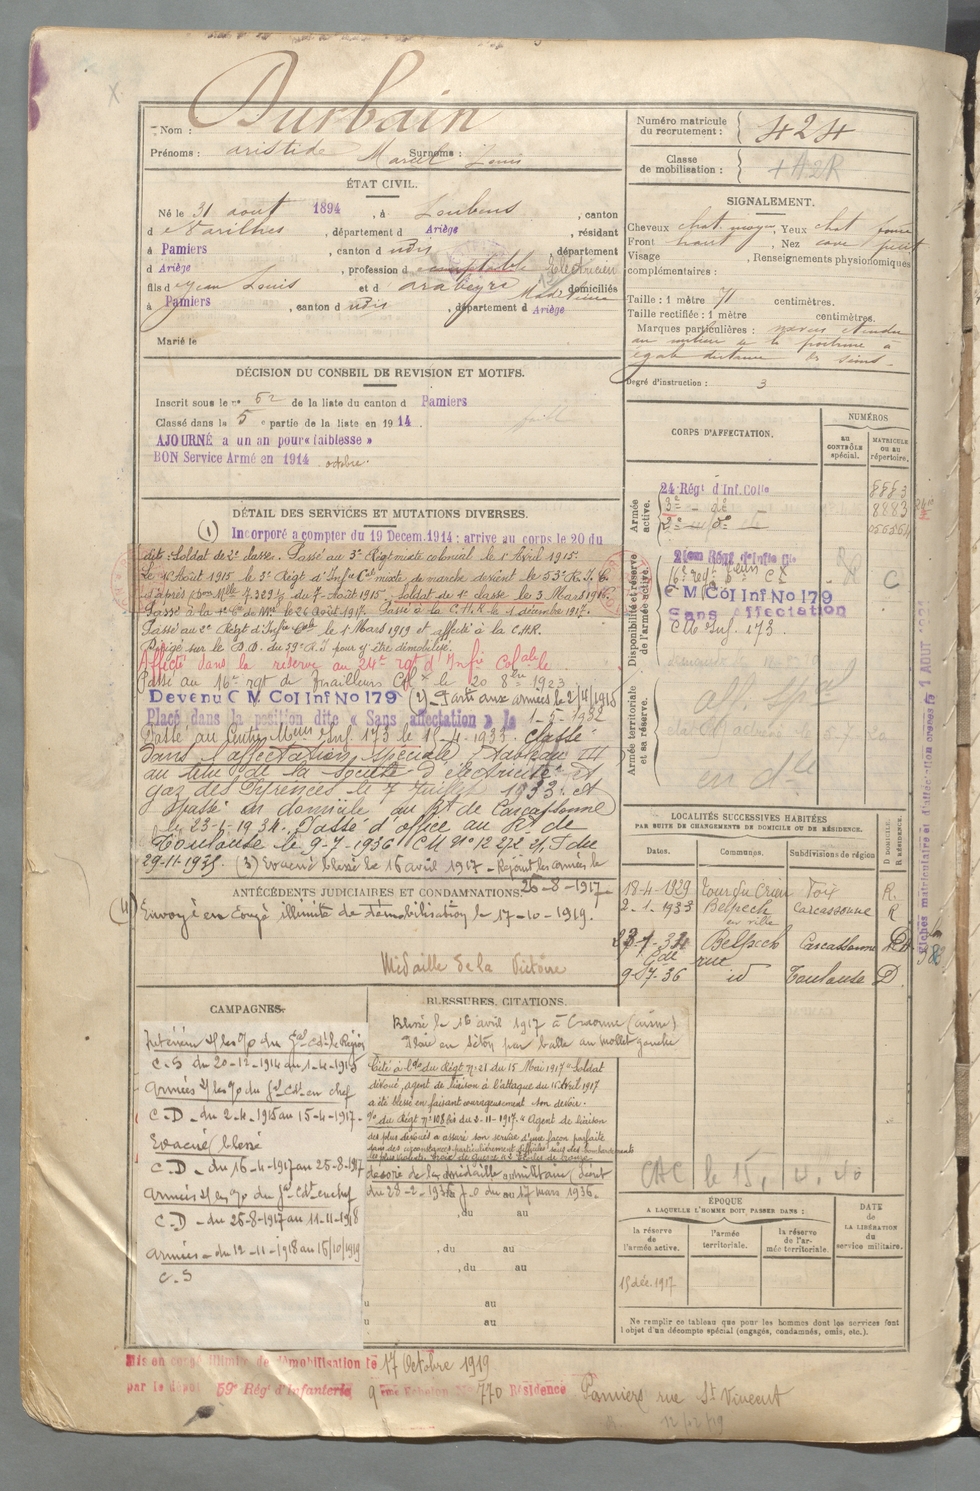 Nom : Durbain
Prénoms : aristide Marcel Louis Surnoms :
Numéro matricule du recrutement : 424
Classe de mobilisation :
ÉTAT CIVIL.
Né le 31 aout 1894, à Loubens, canton
d e Varilhes, département d Ariège, résidant
à Pamiers, canton d udis, département
d Ariège, profession d comptable Electricien
fils d e Jean Louis et d arabeyre Madeleine domiciliés
à Pamiers, canton d udis, département d Ariège
Marié le
SIGNALEMENT.
Cheveux chat. moyen, Yeux chat foncé
Front haut, Nez cave petit
Visage , Renseignements physionomiques
complémentaires :
Taille : 1 mètre 71 centimètres.
Taille rectifiée : 1 mètre centimètres.
Marques particulières : naevus étendu
au milieu de la poitrine à
égale distance des seins
Degré d'instruction : 3
DÉCISION DU CONSEIL DE REVISION ET MOTIFS.
Inscrit sous le n° 52 de la liste du canton d Pamiers
Classé dans la 5e partie de la liste en 1914.
AJOURNÉ à un an pour « faiblesse »
BON Service Armé en 1914 octobre.
CORPS D'AFFECTATION.
NUMÉROS
AU CONTRÔLE spécial.
MATRICULE OU AU répertoire.
Armée active.
24 Régt d'Inf. Colle 8883
3e - de 8883
2e - de
Disponibilité et réserve de l'armée active.
21ème Régt d'Infie Cle
16e regt
C M Col Inf No 179
Sans affectation
C M Inf. 173.
Armée territoriale et sa réserve.
aff. Spal
DÉTAIL DES SERVICES ET MUTATIONS DIVERSES.
(1) Incorporé a compter du 19 Decem. 1914 : arrive au corps le 20 du
dit : Soldat de 2e classe. Passé au 3e Régt mixte colonial le 1er Avril 1915.
Le 1er Août 1915 le 3e Régt d'Infie Cle mixte de marche devient le 53e R.I.C.
d'après Mlle 7.329 1/3 du 7 Août 1915. Soldat de 1e classe le 3 Mars 1916.
Passé à la 1e Cie de Mses le 26 Août 1917. Passé à la C.H.R le 1 décembre 1917.
Passé au 2e Régt d'Infie Cole le 1er Mars 1919 et affecté à la C.H.R.
Dirigé sur le D.D. du 59e R.I pour y être démobilisé.
Affecté dans la réserve au 24e rgt d'Infie Colale
Passé au 16e rgt de Tirailleurs Colx le 20 8bre 1923
Devenu C M Col Inf No 179 (2) Parti aux armées le 2/4/1915
Placé dans la position dite « Sans affectation » le 1-5-1932
Passé au Centre Mon Inf. 173 le 15-4-1933. Classé
dans l'affectation spéciale Tableau III
au titre de la Société d'électricité et
gaz des Pyrénées le 7 Juillet 1933. et
passé en domicile au Rt de Carcassonne
le 23-1-1934. Passé d'office au Rt de
Toulouse le 9-7-1936 CM No 12
29-11-1935. (3) Evacué blessé le 16 avril 1917 - Rejoint les armées le
26-8-1917
LOCALITÉS SUCCESSIVES HABITÉES
PAR SUITE DE CHANGEMENTS DE DOMICILE OU DE RÉSIDENCE.
Dates. Communes. Subdivisions de région D DOMICILE. R RÉSIDENCE.
18-4-1929 Tour du Crieu Foix R
2-1-1933 Belpech Carcassonne R
en ville
Belpech Carcassonne D
Gde rue
9-7-36 id Toulouse D.
Fiches matriculaire et d'affectation
ANTÉCÉDENTS JUDICIAIRES ET CONDAMNATIONS.
(4) Envoyé en Congé illimité de Démobilisation le 17-10-1919.
Médaille de la Victoire
CAMPAGNES.
Intérieur s/ les o/ du Gal Cdt la Région
C.S du 20-12-1914 au 1-4-1915
Armées s/ les o/ du Gal Cdt en chef
C.D - du 2-4-1915 au 15-4-1917.
Evacué blessé
C.D - du 16-4-1917 au 25-8-1917
Armées s/ les o/ du Gal Cdt en chef
C.D - du 26-8-1917 au 11-11-1918
Armées - du 12-11-1918 au 15/10/1919
C.S
BLESSURES, CITATIONS.
Blessé le 16 avril 1917 à Craonne (aisne)
Plaie en séton par balle au mollet gauche
Cité à l'Ordre du Régt No 21 du 15 Mai 1917 "Soldat
dévoué, agent de liaison à l'attaque du 16 Avril 1917
a été blessé en faisant courageusement son devoir.
No du Régt No 108 bis du 3-11-1917. "Agent de liaison
des plus dévoués a assuré son service d'une façon parfaite
dans des circonstances particulièrement difficiles sous des bombardements
les plus violents. Croix de Guerre
décoré de la médaille militaire décret
du 28-2-1936 J.O du 17 mars 1936.
, du au
, du au
, du au
au
au
CAC le 15, 4. 40
ÉPOQUE
A LAQUELLE L'HOMME DOIT PASSER DANS :
la réserve de l'armée active.
l'armée territoriale.
la réserve de l'armée territoriale
DATE de LA LIBÉRATION du service militaire.
15 déc. 1917
Ne remplir ce tableau que pour les hommes dont les services font
l'objet d'un décompte spécial (engagés, condamnés, omis, etc.).
Mis en congé illimité de démobilisation le 17 Octobre 1919
par le dépôt 59e Rég. d'Infanterie 9ème Echelon No 770 Résidence Pamiers rue St Vincent
12/12/19